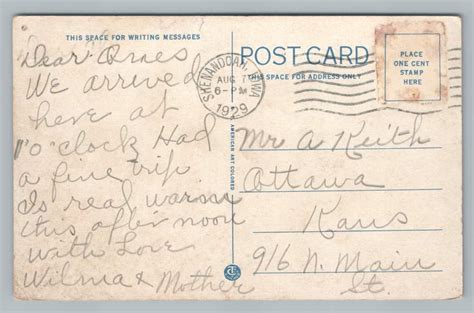 THIS SPACE FOR WRITING MESSAGES
Dear Ones
We arrived
here at
1 o'clock Had
a fine trip
Is real warm
this afternoon
with Love
Wilma & Mother
SHENANDOAH, IOWA
AUG 7
6-PM
1929
AMERICAN ART COLORED
POST CARD
THIS SPACE FOR ADDRESS ONLY
PLACE
ONE CENT
STAMP
HERE
Mr A Keith
Ottawa
Kans
916 N. Main
St.